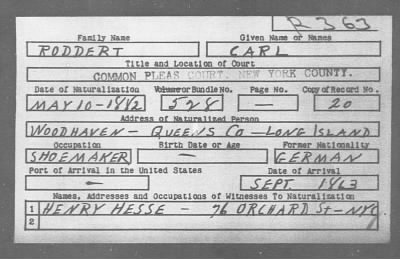 R 363
Family Name Given Name or Names
RODDERT CARL
Title and Location of Court
COMMON PLEAS COURT, NEW YORK COUNTY.
Date of Naturalization Volume or Bundle No. Page No. Copy of Record No.
MAY 10-1882 528 — 20
Address of Naturalized Person
WOODHAVEN - QUEENS CO - LONG ISLAND
Occupation Birth Date or Age Former Nationality
SHOEMAKER — GERMAN
Port of Arrival in the United States Date of Arrival
— SEPT. 1863
Names, Addresses and Occupations of Witnesses To Naturalization
1 HENRY HESSE - 76 ORCHARD St - NYC
2